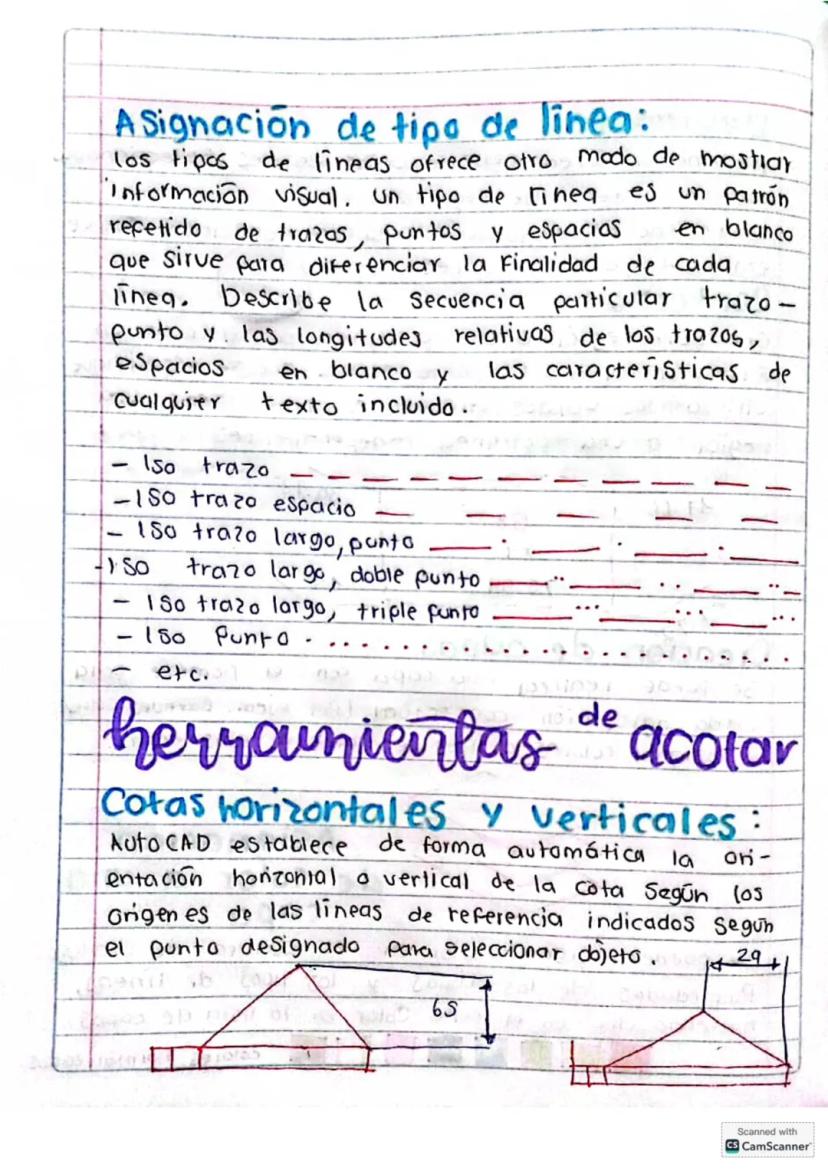 Asignación de tipo de línea:
los tipos de líneas ofrece otro modo de mostrar
información visual. un tipo de línea es un patrón
repetido de trazos, puntos y espacios en blanco
que sirve para diferenciar la Finalidad de cada
línea. Describe la secuencia particular trazo-
punto y las longitudes relativas de los trazos,
espacios en blanco y las características de
cualquier texto incluido.
- Iso trazo
- ISO trazo espacio
- ISO trazo largo, punto
- ISO trazo largo, doble punto
- ISO trazo largo, triple punto
- ISO Punto
- etc.
herramientas de acotar
Cotas horizontales y verticales:
AutoCAD establece de forma automática la ori-
entación horizontal o vertical de la cota según los
orígenes de las líneas de referencia indicados según
el punto designado para seleccionar objeto.
29
65
Scanned with
CS CamScanner